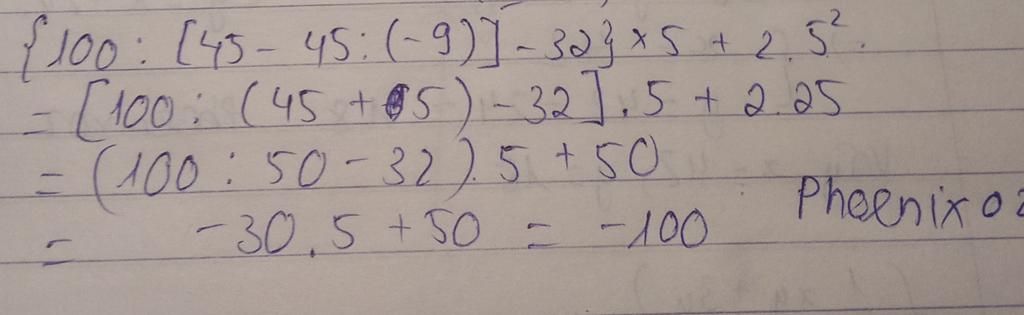 {100 : [45 - 45 : (-9)] - 32} × 5 + 2.5².
= [100 : (45 + 5) - 32] . 5 + 2.25
= (100 : 50 - 32) . 5 + 50
= -30.5 + 50 = -100
Phoenix